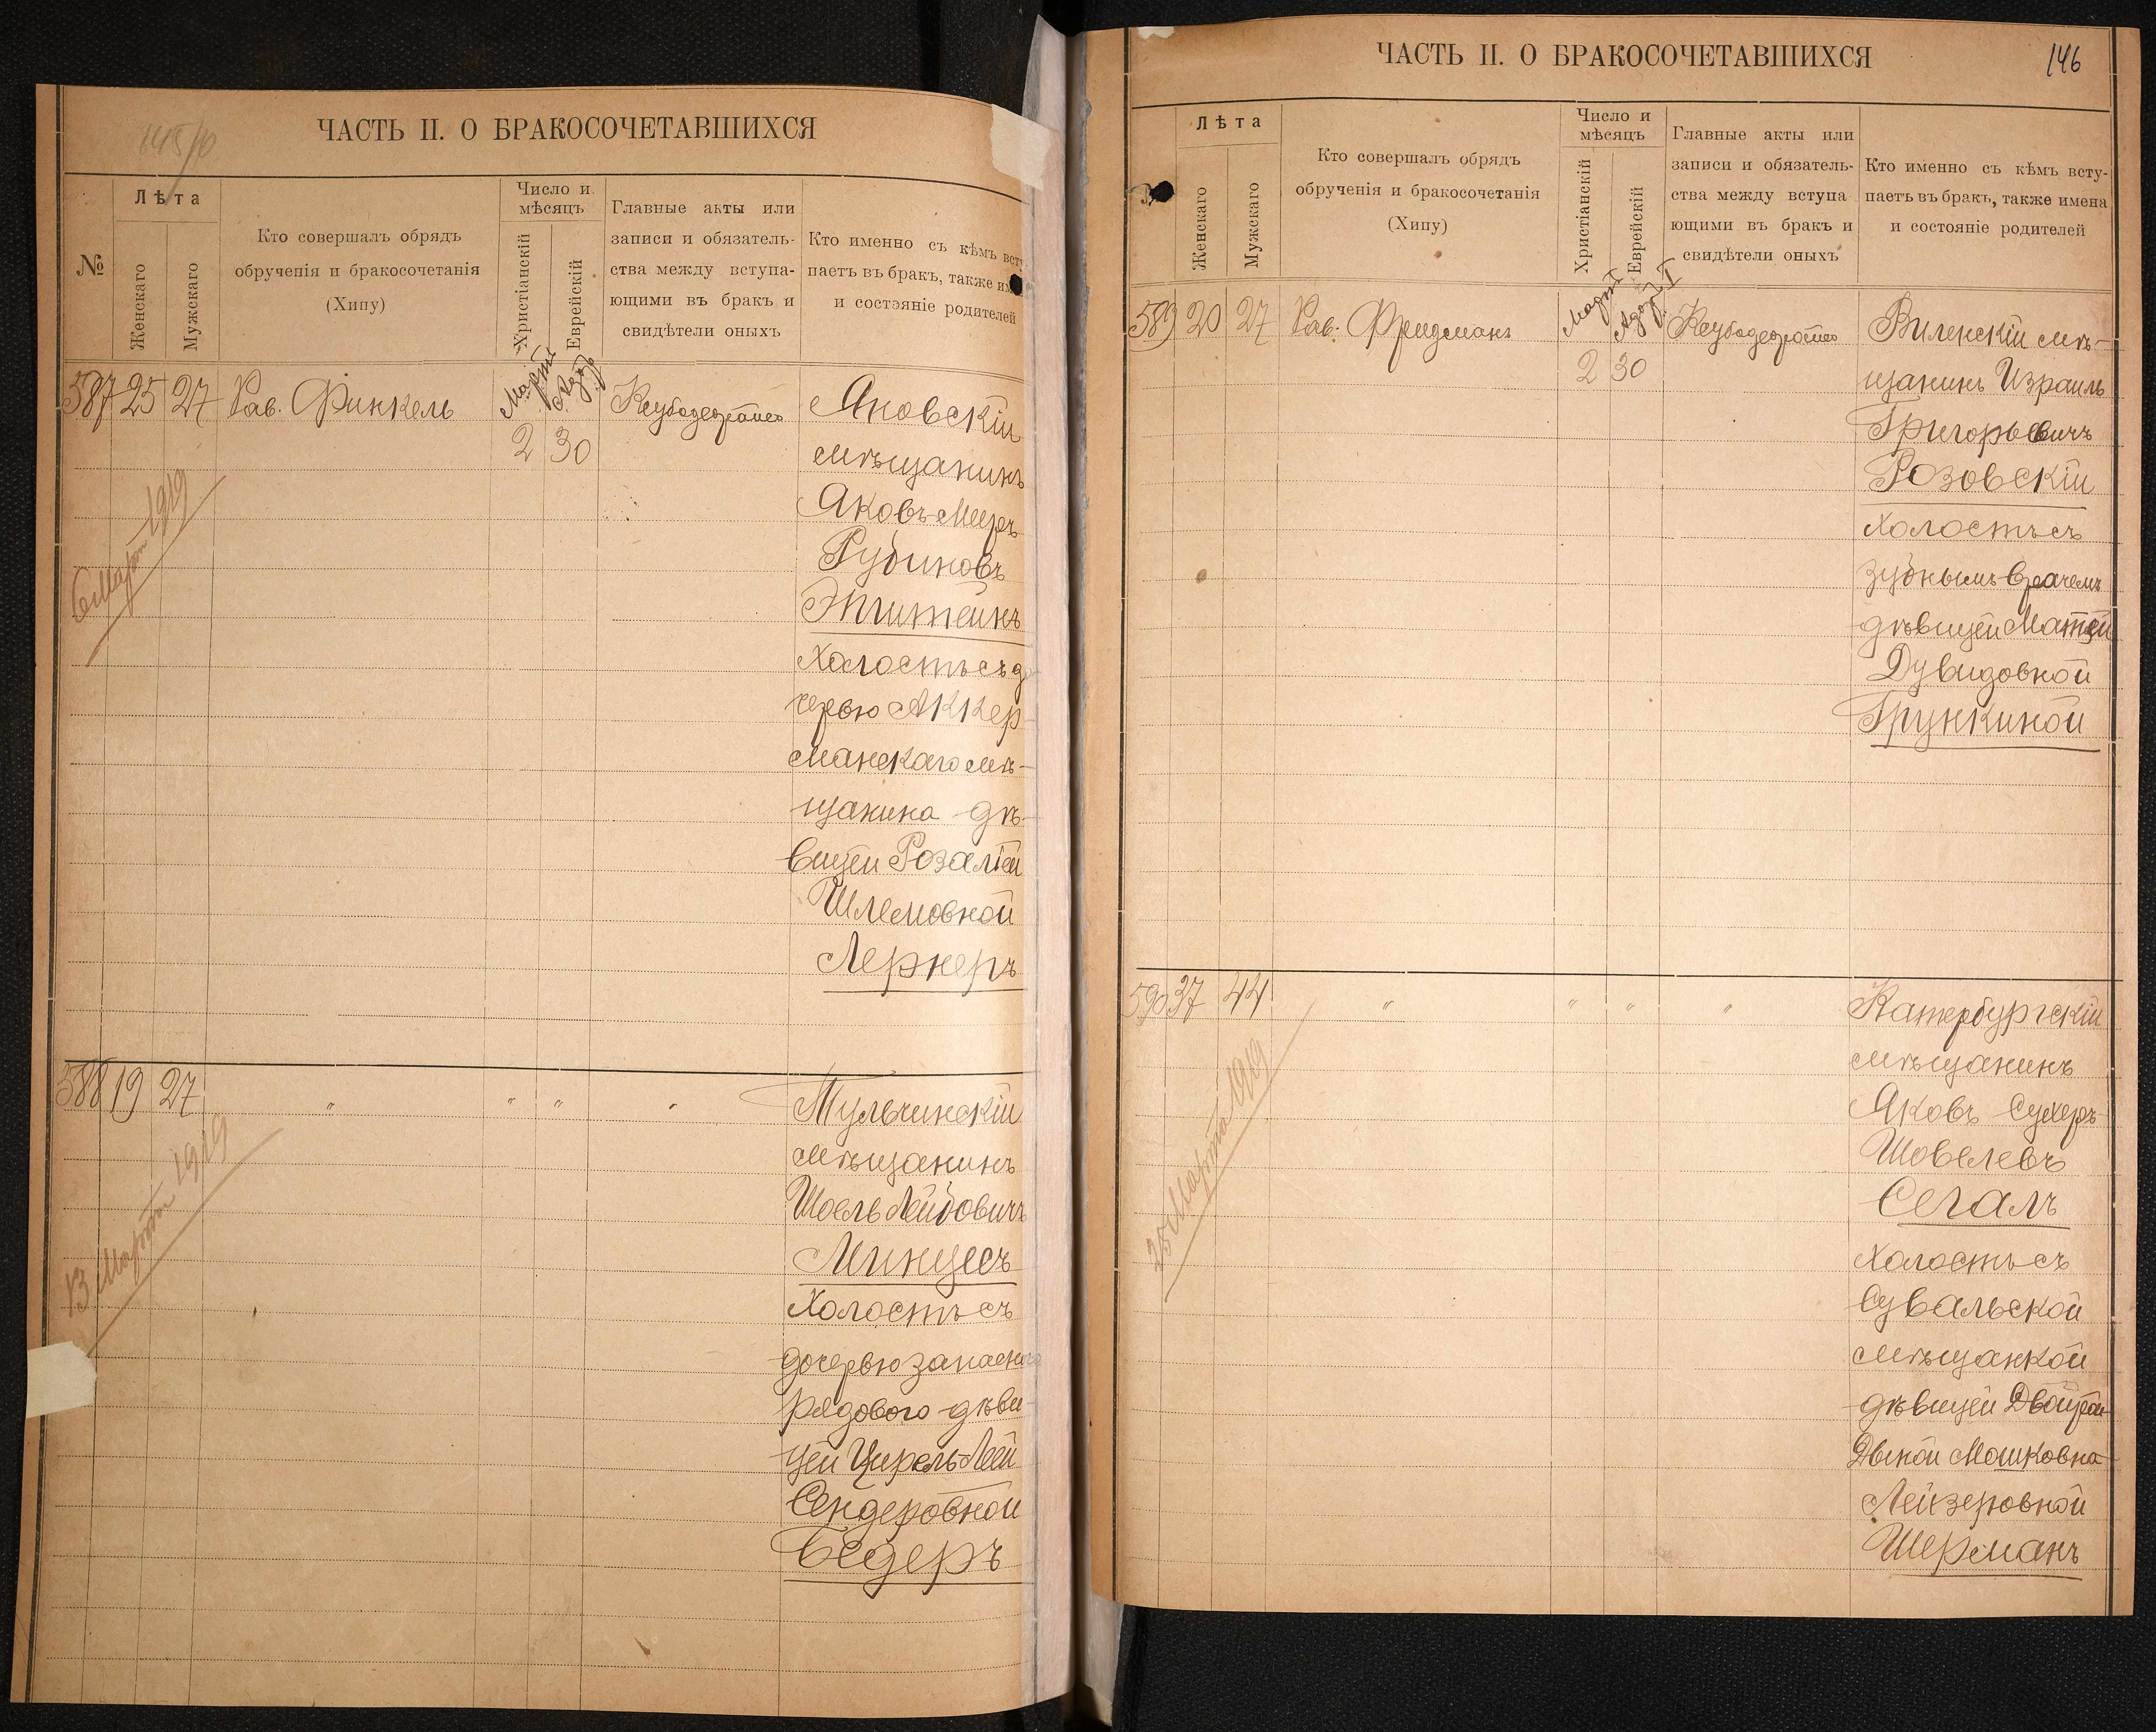 145/10
ЧАСТЬ II. О БРАКОСОЧЕТАВШИХСЯ
№
Лѣта
Женскаго
Мужскаго
Кто совершалъ обрядъ
обрученія и бракосочетанія
(Хипу)
Число и
мѣсяцъ
Христіанскій
Еврейскій
Главные акты или
записи и обязатель-
ства между вступа-
ющими въ бракъ и
свидѣтели оныхъ
Кто именно съ кѣмъ всту
паетъ въ бракъ, также им
и состэяніе родителей
587 25 27 Рав. Финкель
Мартъ Адоръ
2 30
Яновскій
мѣщанинъ
Яковъ-Мееръ
Рубиновъ
Эпштейнъ
холостъ съ до
черью Аккер-
манскаго мѣ-
щанина дѣ-
вицей Розаліей
Шлемовной
Лернеръ
6 Марта 1919
588 19 27 " " " "
Тульчинскій
мѣщанинъ
Шоель Лейбовичъ
Минцесъ
холостъ съ
дочерью запаснаго
рядового дѣви-
цей Цирель-Леей
Сендеровной
Бедеръ
13 Марта 1919
ЧАСТЬ II. О БРАКОСОЧЕТАВШИХСЯ
146
Лѣта
Женскаго
Мужскаго
Кто совершалъ обрядъ
обрученія и бракосочетанія
(Хипу)
Число и
мѣсяцъ
Христіанскій
Еврейскій
Главные акты или
записи и обязатель-
ства между вступа
ющими въ бракъ и
свидѣтели оныхъ
Кто именно съ кѣмъ всту-
паетъ въ бракъ, также имена
и состояніе родителей
589 20 27 Рав. Фридманъ
Мартъ Адоръ I
2 30
Виленскій мѣ-
щанинъ Израиль
Григорьевичъ
Розовскій
холостъ съ
зубнымъ врачемъ
дѣвицей
Дувидовной
Грункиной
590 37 44 " " " "
Катербургскій
мѣщанинъ
Яковъ Сухеръ
Шовелевъ
Сегалъ
холостъ съ
Сувальской
мѣщанкой
дѣвицей
Мошковна-
Лейзеровной
Шерманъ
25 Марта 1919